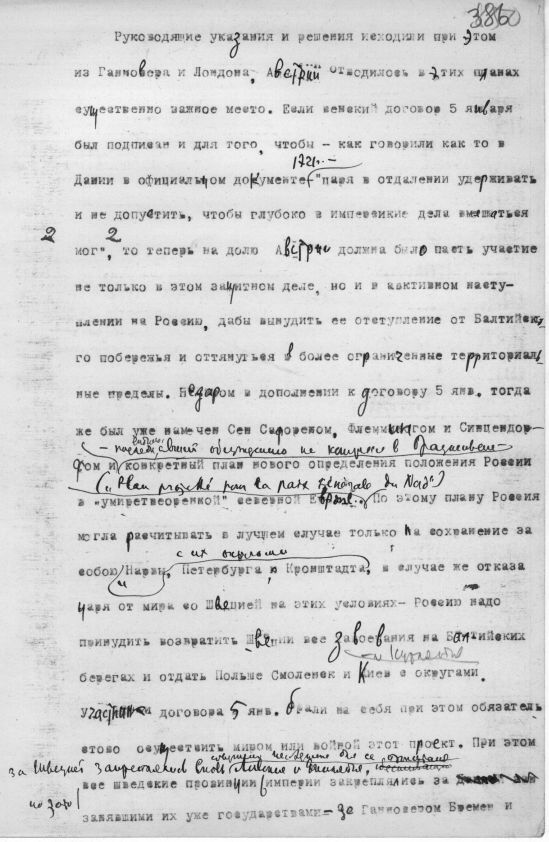 Руководящие указания и решения исходили при этом
из Ганновера и Лондона, Австрии отводилось в этих планах
существенно важное место. Если венский договор 5 января
был подписан и для того, чтобы - как говорили как то в
1721г. -
Дании в официальном документе - "царя в отдалении удерживать
и не допустить, чтобы глубоко в имперские дела вмешаться
2 2
мог", то теперь на долю Австрии должна было пасть участие
не только в этом защитном деле, но и в активном насту-
плении на Россию, дабы вынудить ее отступление от Балтийско
го побережья и оттянуться в более ограниченные территориаль
ные пределы. Недаром в дополнении к договору 5 янв. тогда
же был уже намечен Сен Сафореном, Флеммингом и Синцендор-
фом и конкретный план нового определения положения России
("Plan projeté pour la paix générale du Nord")
в "умиротворенной" северной Европе. По этому плану Россия
могла расчитывать в лучшем случае только на сохранение за
с их округами
собою Нарвы, и Петербурга, Кронштадта, в случае же отказа
царя от мира со Швецией на этих условиях - Россию надо
принудить возвратить Швеции все завоевания на Балтийских
берегах и отдать Польше Смоленск и Киев с округами.
Участники договора 5 янв. брали на себя при этом обязатель
ство осуществить миром или войной этот проект. При этом
за Швецией закреплялись вновь
все шведские провинции в империи закреплялись за
занявшими их уже государствами - за Ганновером Бремен и